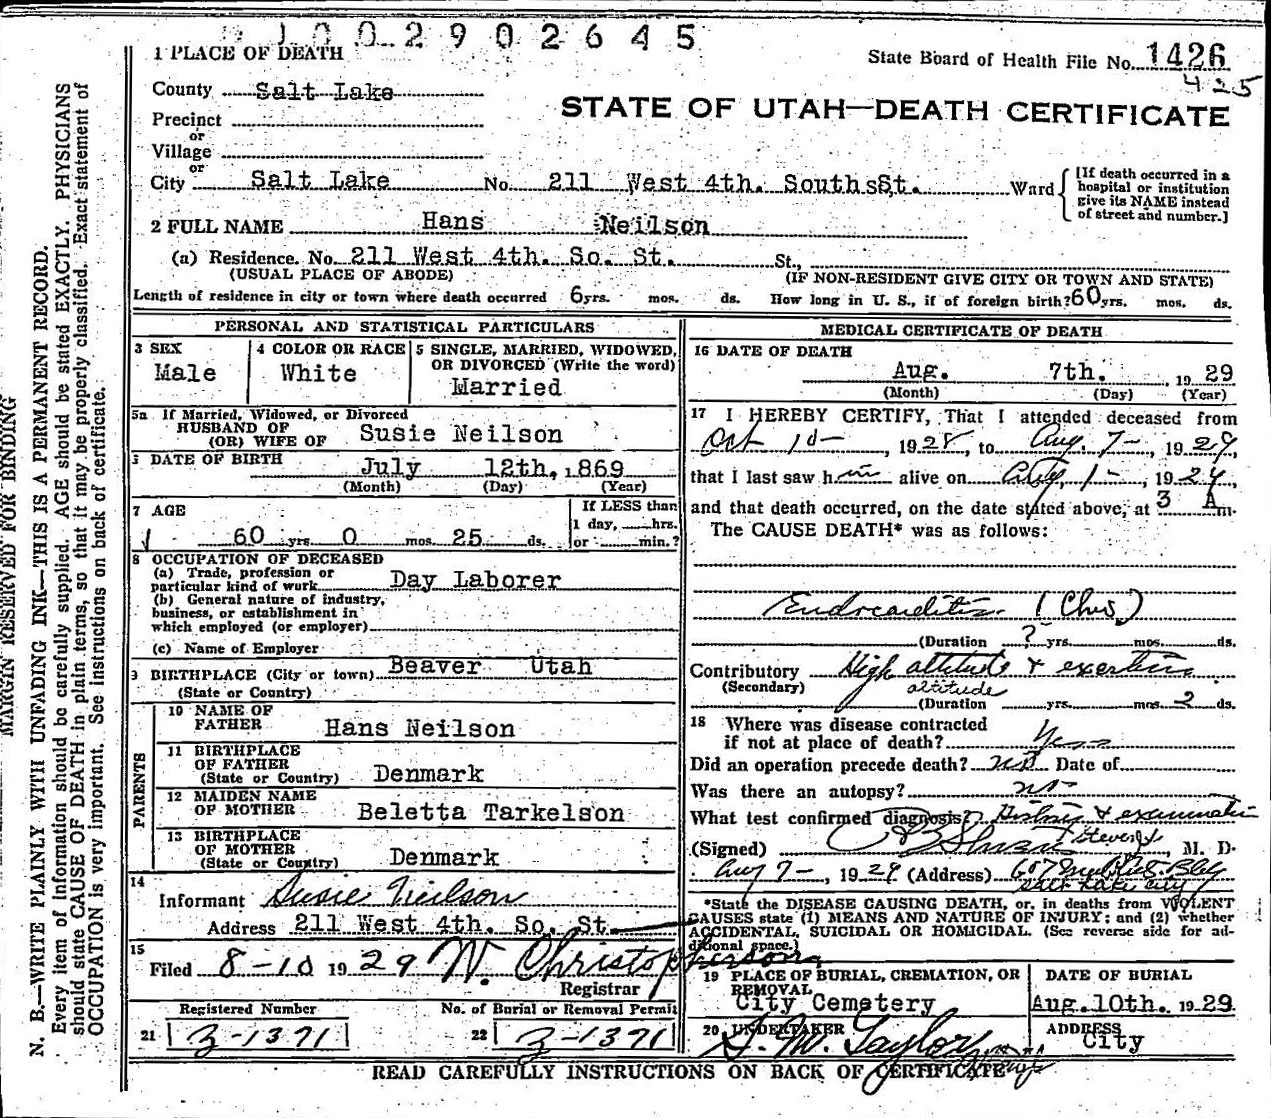 2902645
1 PLACE OF DEATH
State Board of Health File No. 1426
425
County Salt Lake
STATE OF UTAH—DEATH CERTIFICATE
Precinct
or
Village
or
City Salt Lake No. 211 West 4th. South St. Ward
[If death occurred in a hospital or institution give its NAME instead of street and number.]
2 FULL NAME Hans Neilson
(a) Residence. No. 211 West 4th. So. St. St.,
(USUAL PLACE OF ABODE) (IF NON-RESIDENT GIVE CITY OR TOWN AND STATE)
Length of residence in city or town where death occurred 6 yrs. mos. ds. How long in U. S., if of foreign birth? 60 yrs. mos. ds.
PERSONAL AND STATISTICAL PARTICULARS
3 SEX
Male
4 COLOR OR RACE
White
5 SINGLE, MARRIED, WIDOWED,
OR DIVORCED (Write the word)
Married
5a If Married, Widowed, or Divorced
HUSBAND OF
(OR) WIFE OF Susie Neilson
DATE OF BIRTH July 12th, 1869
(Month) (Day) (Year)
7 AGE
60 yrs. 0 mos. 25 ds.
If LESS than
1 day, hrs.
or min.?
8 OCCUPATION OF DECEASED
(a) Trade, profession or
particular kind of work Day Laborer
(b) General nature of industry,
business, or establishment in
which employed (or employer)
(c) Name of Employer
9 BIRTHPLACE (City or town) Beaver Utah
(State or Country)
PARENTS
10 NAME OF
FATHER Hans Neilson
11 BIRTHPLACE
OF FATHER
(State or Country) Denmark
12 MAIDEN NAME
OF MOTHER Beletta Tarkelson
13 BIRTHPLACE
OF MOTHER
(State or Country) Denmark
14
Informant Susie Neilson
Address 211 West 4th. So. St.
15
Filed 8-10 1929 W. Christopherson
Registrar
Registered Number
21 Z-1371
No. of Burial or Removal Permit
22 Z-1371
MEDICAL CERTIFICATE OF DEATH
16 DATE OF DEATH
Aug. 7th. , 1929
(Month) (Day) (Year)
17 I HEREBY CERTIFY, That I attended deceased from
Oct 10- 1928, to Aug. 7- , 1929,
that I last saw him alive on Aug. 1- , 1929,
and that death occurred, on the date stated above, at 3 A m.
The CAUSE DEATH* was as follows:
Endocarditis (Chr)
(Duration ? yrs. mos. ds.
Contributory High altitude & exertion
(Secondary) altitude
(Duration yrs. mos. 2 ds.
18 Where was disease contracted
if not at place of death? Yes
Did an operation precede death? no Date of
Was there an autopsy? no
What test confirmed diagnosis? History & examination
(Signed) , M. D.
Aug 7- , 1929 (Address) 607 Bldg
Salt Lake City
*State the DISEASE CAUSING DEATH, or, in deaths from VIOLENT
CAUSES state (1) MEANS AND NATURE OF INJURY; and (2) whether
ACCIDENTAL, SUICIDAL OR HOMICIDAL. (See reverse side for additional space.)
19 PLACE OF BURIAL, CREMATION, OR
REMOVAL
City Cemetery
DATE OF BURIAL
Aug. 10th. 1929
20 UNDERTAKER
S. M. Taylor
ADDRESS
City
READ CAREFULLY INSTRUCTIONS ON BACK OF CERTIFICATE
MARGIN RESERVED FOR BINDING
N. B.—WRITE PLAINLY WITH UNFADING INK—THIS IS A PERMANENT RECORD.
Every item of information should be carefully supplied. AGE should be stated EXACTLY. PHYSICIANS
should state CAUSE OF DEATH in plain terms, so that it may be properly classified. Exact statement of
OCCUPATION is very important. See instructions on back of certificate.